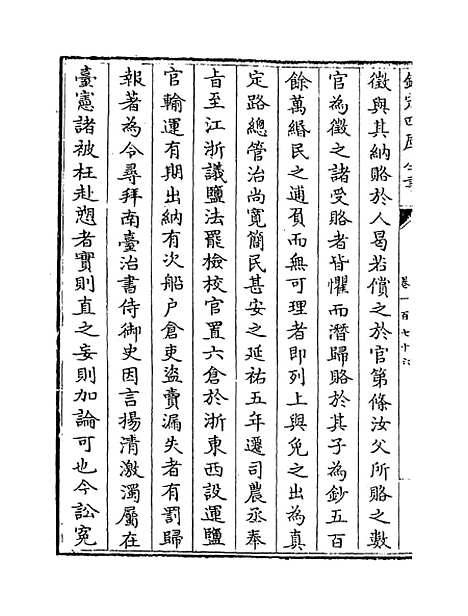 欽定四庫全書
卷一百七十六
徵與其納賂於人曷若償之於官第條汝父所賂之數
官為徵之諸受賂者皆懼而潛歸賂於其子為鈔五百
餘萬緡民之逋負而無可理者即列上與免之出為真
定路總管治尚寛簡民甚安之延祐五年遷司農丞奉
㫖至江浙議鹽法罷檢校官置六倉於浙東西設運鹽
官輸運有期出納有次船户倉吏盜賣漏失者有罰歸
報著為令尋拜南臺治書侍御史因言揚清激濁屬在
臺憲諸被枉赴愬者實則直之妄則加論可也今訟寃